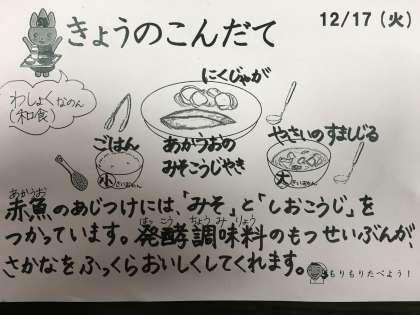 きょうのこんだて
12/17（火）
わしょくなのん
（和食）
にくじゃが
ごはん
あかうおの
みそこうじやき
やさいのすましじる
小
大
あかうお
赤魚のあじつけには、「みそ」と「しおこうじ」を
はっこうちょうみりょう
つかっています。発酵調味料のもつせいぶんが
さかなをふっくらおいしくしてくれます。
もりもりたべよう！